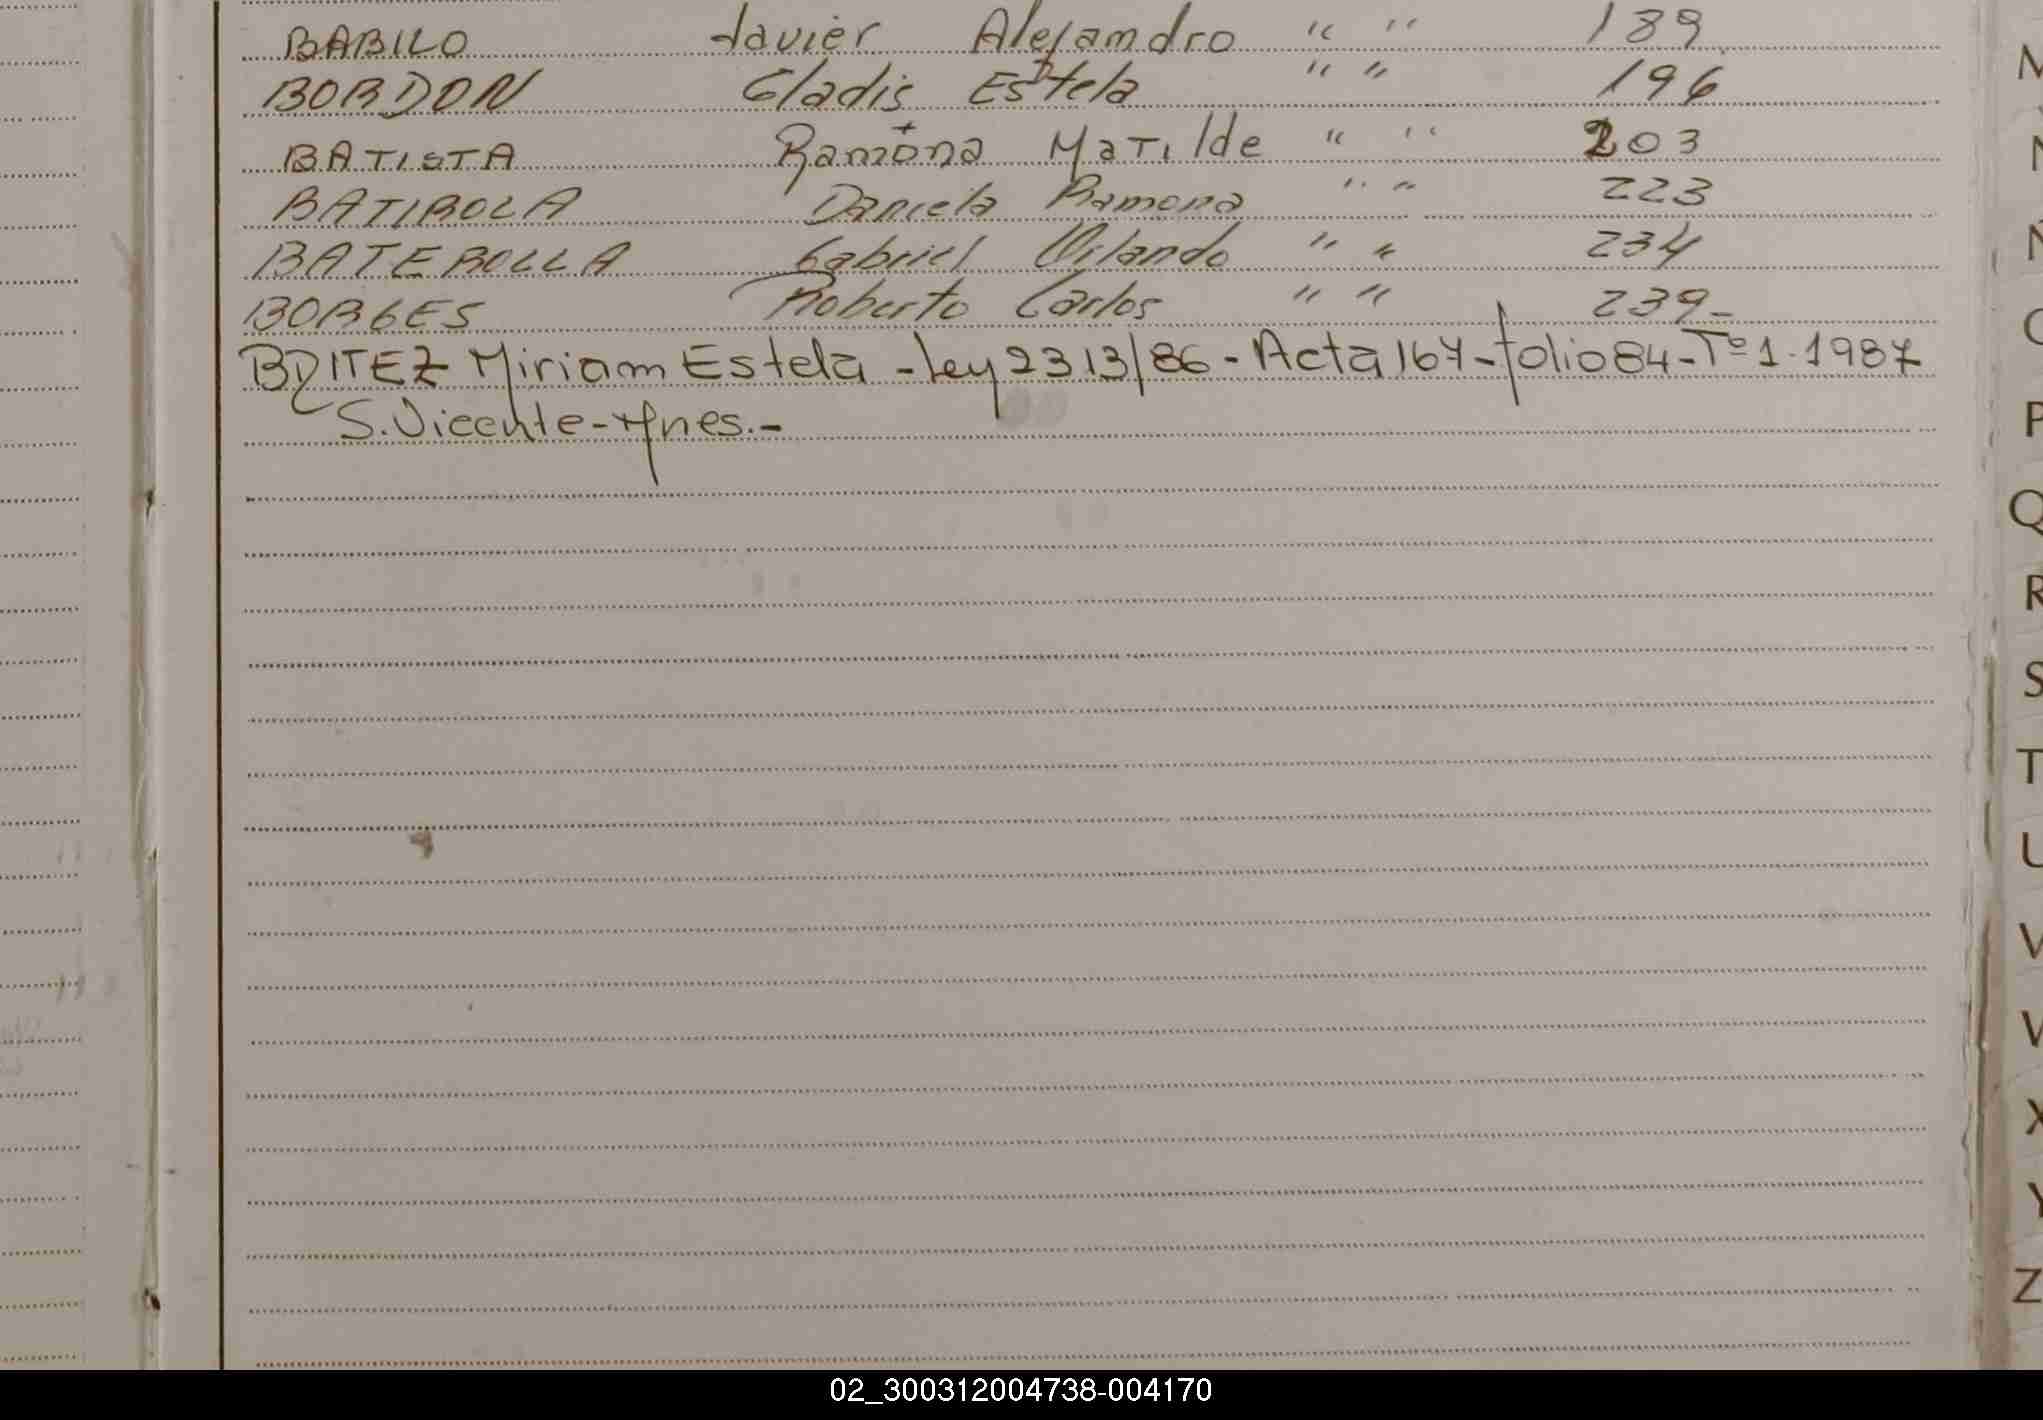 BABILO Javier Alejandro " " 189
BORDON Gladis Estela " " 196
BATISTA Ramona Matilde " " 203
BATIROLA Daniela Ramona " " 223
BATEROLLA Gabriel Orlando " " 234
BORGES Roberto Carlos " " 239-
BRITEZ Miriam Estela - Ley 2313/86 - Acta 167 - folio 84 - Tº 1 - 1987
S. Vicente - Mnes. -
M
N
Ñ
O
P
Q
R
S
T
U
V
W
X
Y
Z
02_300312004738-004170